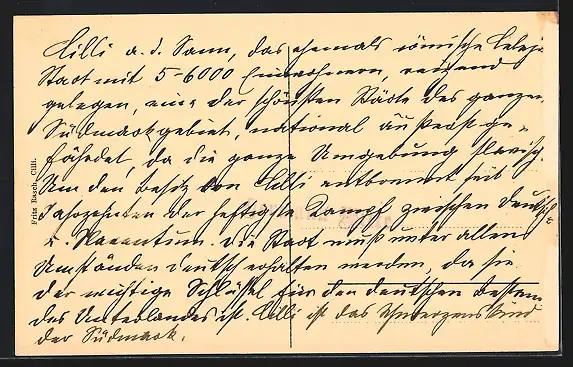 Cilli a. d. Sann, das ehemals römische Celeja
Stadt mit 5-6000 Einwohnern, reizend
gelegen, eine der schönsten Städte des ganzen
Südmarkgebiet, national äußerst ge-
fährdet, da die ganze Umgebung slavisch.
Um den Besitz von Cilli entbrennt seit
Jahrzehnten der heftigste Kampf zwischen Deutsch-
u. Slaventum. Die Stadt muß unter allen
Umständen deutsch erhalten werden, da sie
der wichtige Schlüssel für den deutschen Besten
des Unterlandes ist. Cilli ist das Schmerzenskind
der Südmark.
Fritz Rasch, Cilli.